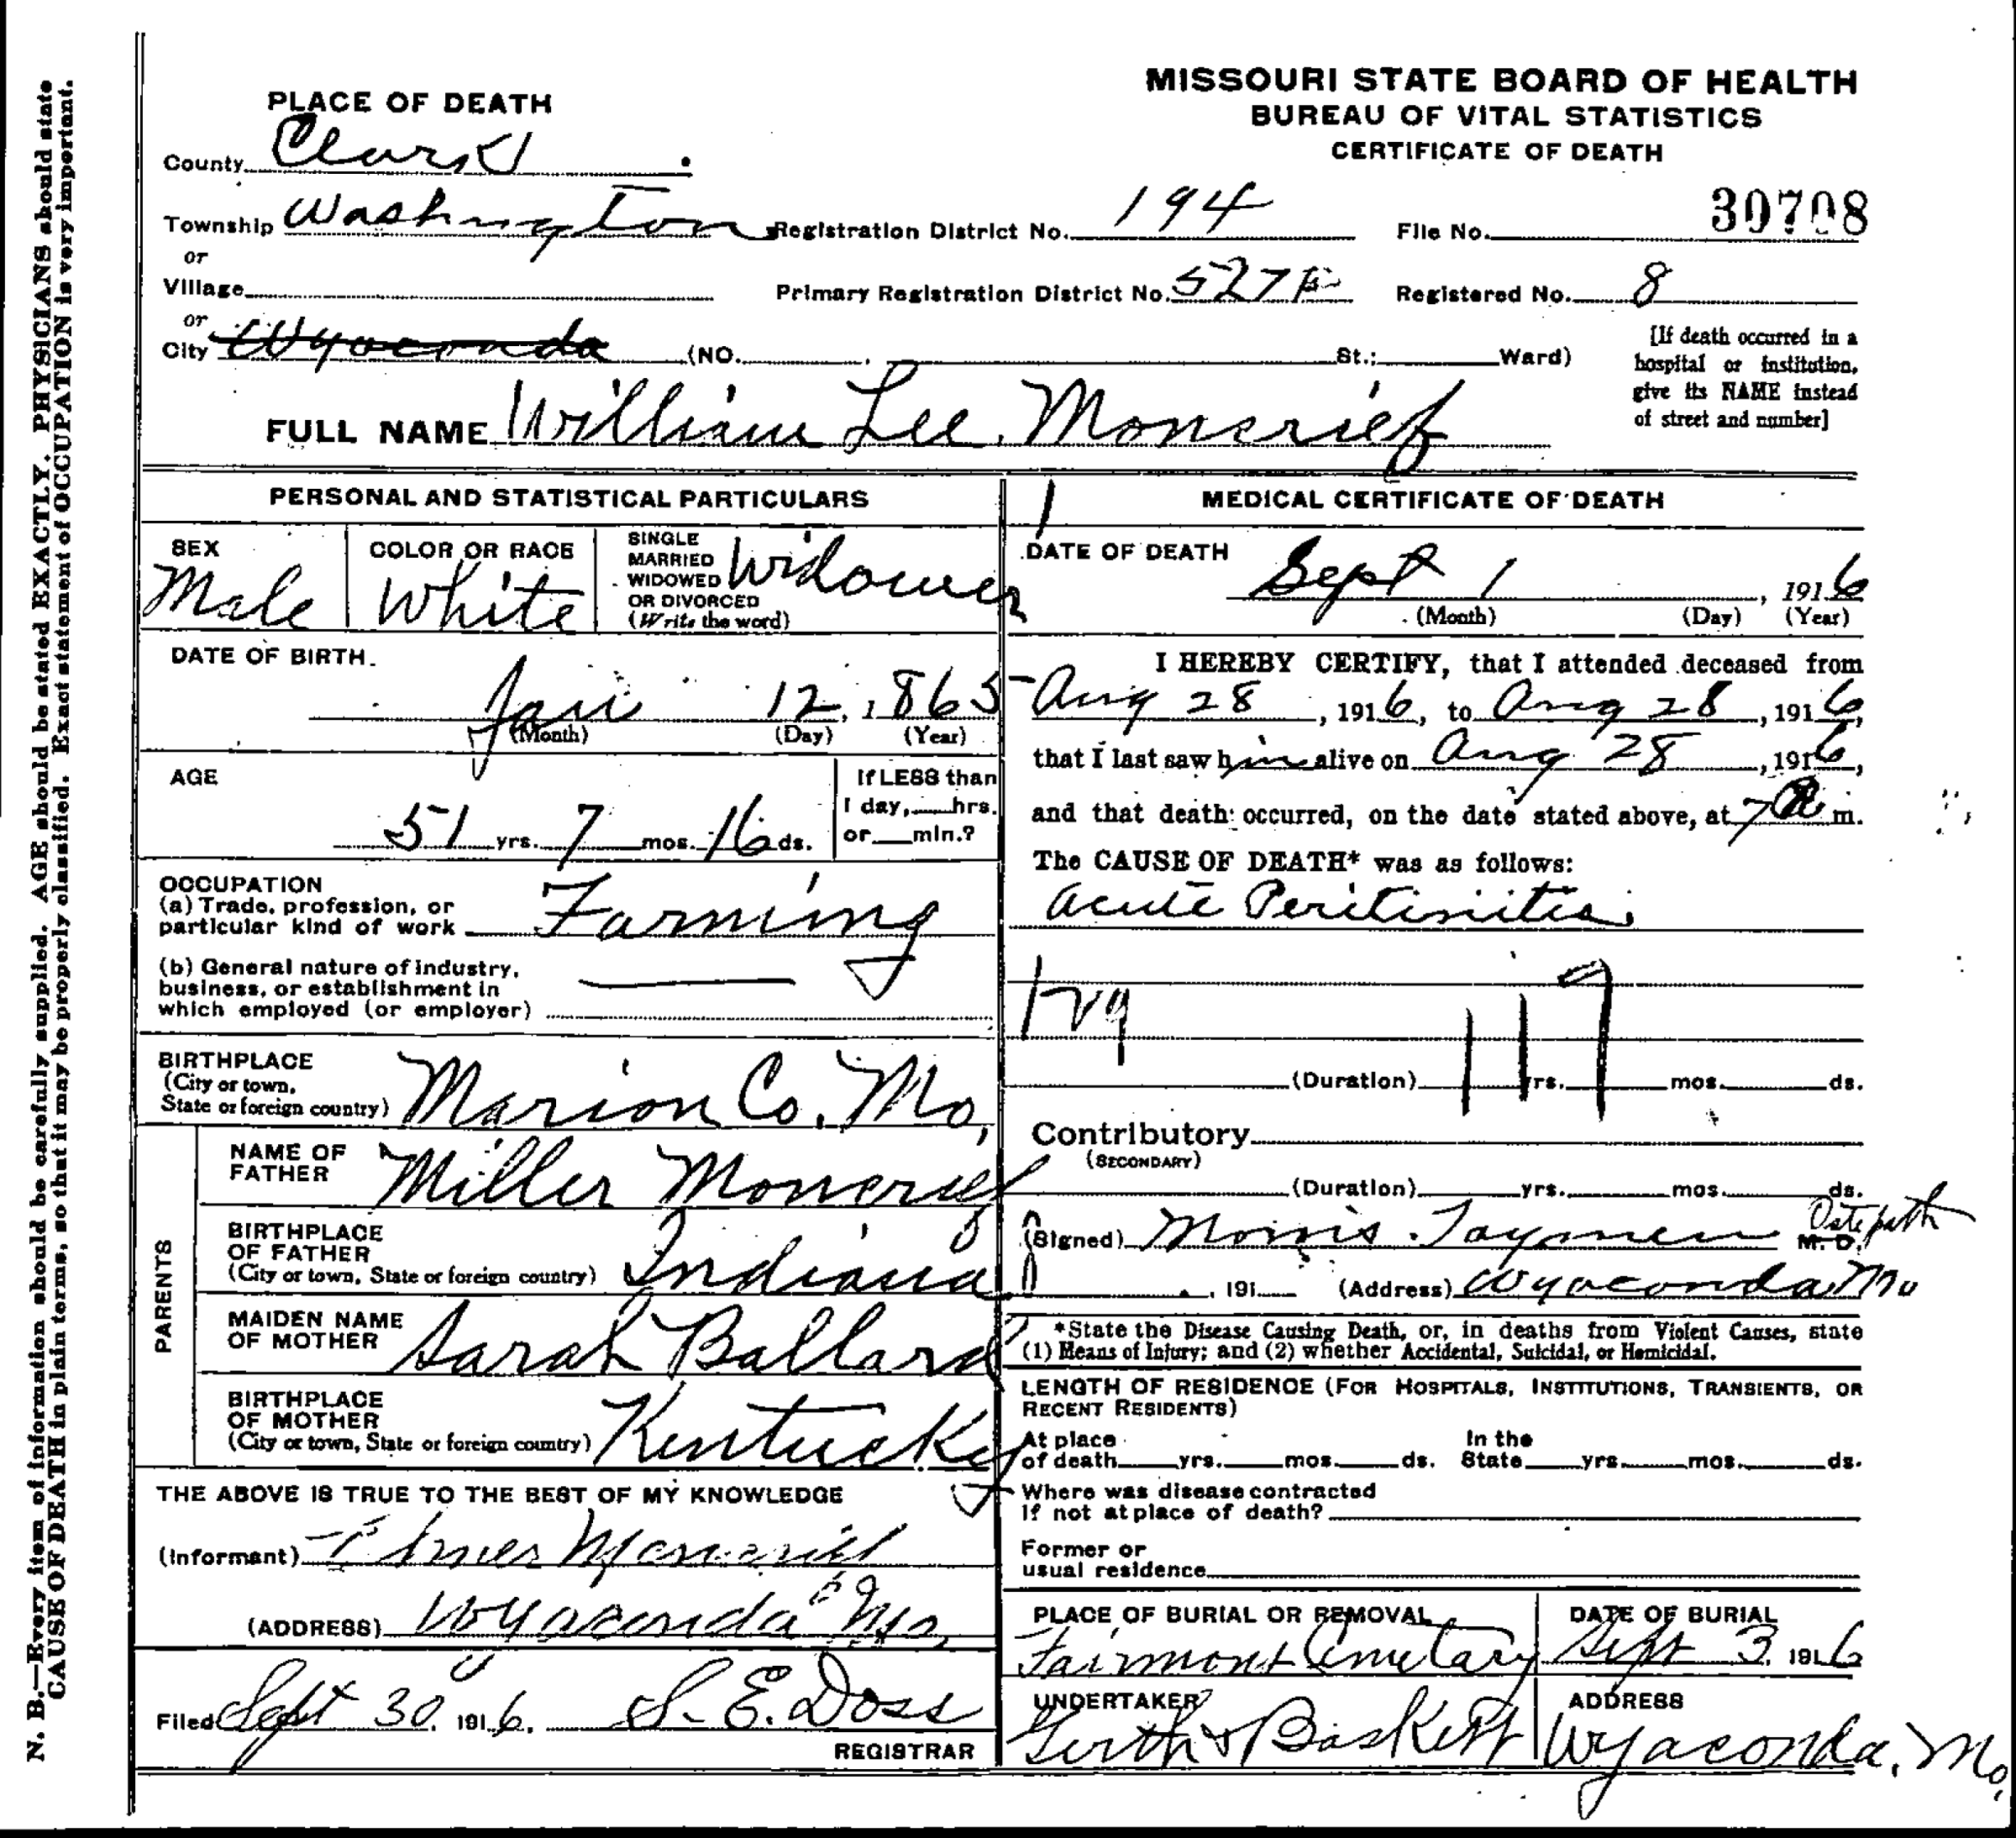 N. B.—Every item of information should be carefully supplied. AGE should be stated EXACTLY. PHYSICIANS should state
CAUSE OF DEATH in plain terms, so that it may be properly classified. Exact statement of OCCUPATION is very important.
MISSOURI STATE BOARD OF HEALTH
BUREAU OF VITAL STATISTICS
CERTIFICATE OF DEATH
PLACE OF DEATH
County Clark
Township Washington Registration District No. 194 File No. 30708
or
Village Primary Registration District No. 527 Registered No. 8
or
City Wyaconda (NO. St.; Ward)
[If death occurred in a
hospital or institution,
give its NAME instead
of street and number]
FULL NAME William Lee Moncrief
PERSONAL AND STATISTICAL PARTICULARS
SEX
Male
COLOR OR RACE
White
SINGLE
MARRIED
WIDOWED
OR DIVORCED
(Write the word)
Widower
DATE OF BIRTH
Jan 12, 1865
(Month) (Day) (Year)
AGE
51 yrs. 7 mos. 16 ds.
If LESS than
1 day, hrs.
or min.?
OCCUPATION
(a) Trade, profession, or
particular kind of work Farming
(b) General nature of industry,
business, or establishment in
which employed (or employer)
BIRTHPLACE
(City or town,
State or foreign country) Marion Co. Mo,
PARENTS
NAME OF
FATHER Miller Moncrief
BIRTHPLACE
OF FATHER
(City or town, State or foreign country) Indiana
MAIDEN NAME
OF MOTHER Sarah Ballard
BIRTHPLACE
OF MOTHER
(City or town, State or foreign country) Kentucky
THE ABOVE IS TRUE TO THE BEST OF MY KNOWLEDGE
(Informant) Elmer Moncrief
(ADDRESS) Wyaconda Mo,
Filed Sept 30, 1916, S. E. Doss
REGISTRAR
MEDICAL CERTIFICATE OF DEATH
DATE OF DEATH
Sept 1, 1916
(Month) (Day) (Year)
I HEREBY CERTIFY, that I attended deceased from
Aug 28, 1916, to Aug 28, 1916,
that I last saw him alive on Aug 28, 1916,
and that death occurred, on the date stated above, at 7 a m.
The CAUSE OF DEATH* was as follows:
Acute Peritinitis.
117
(Duration) yrs. mos. ds.
Contributory
(SECONDARY)
(Duration) yrs. mos. ds.
(Signed) Morris M. D. Ostepath
, 191 (Address) Wyaconda Mo
*State the Disease Causing Death, or, in deaths from Violent Causes, state
(1) Means of Injury; and (2) whether Accidental, Suicidal, or Homicidal.
LENGTH OF RESIDENCE (FOR HOSPITALS, INSTITUTIONS, TRANSIENTS, OR
RECENT RESIDENTS)
At place
of death yrs. mos. ds.
In the
State yrs. mos. ds.
Where was disease contracted
If not at place of death?
Former or
usual residence
PLACE OF BURIAL OR REMOVAL
Fairmont Cemetary
DATE OF BURIAL
Sept 3, 1916
UNDERTAKER
& Baskett
ADDRESS
Wyaconda, Mo,